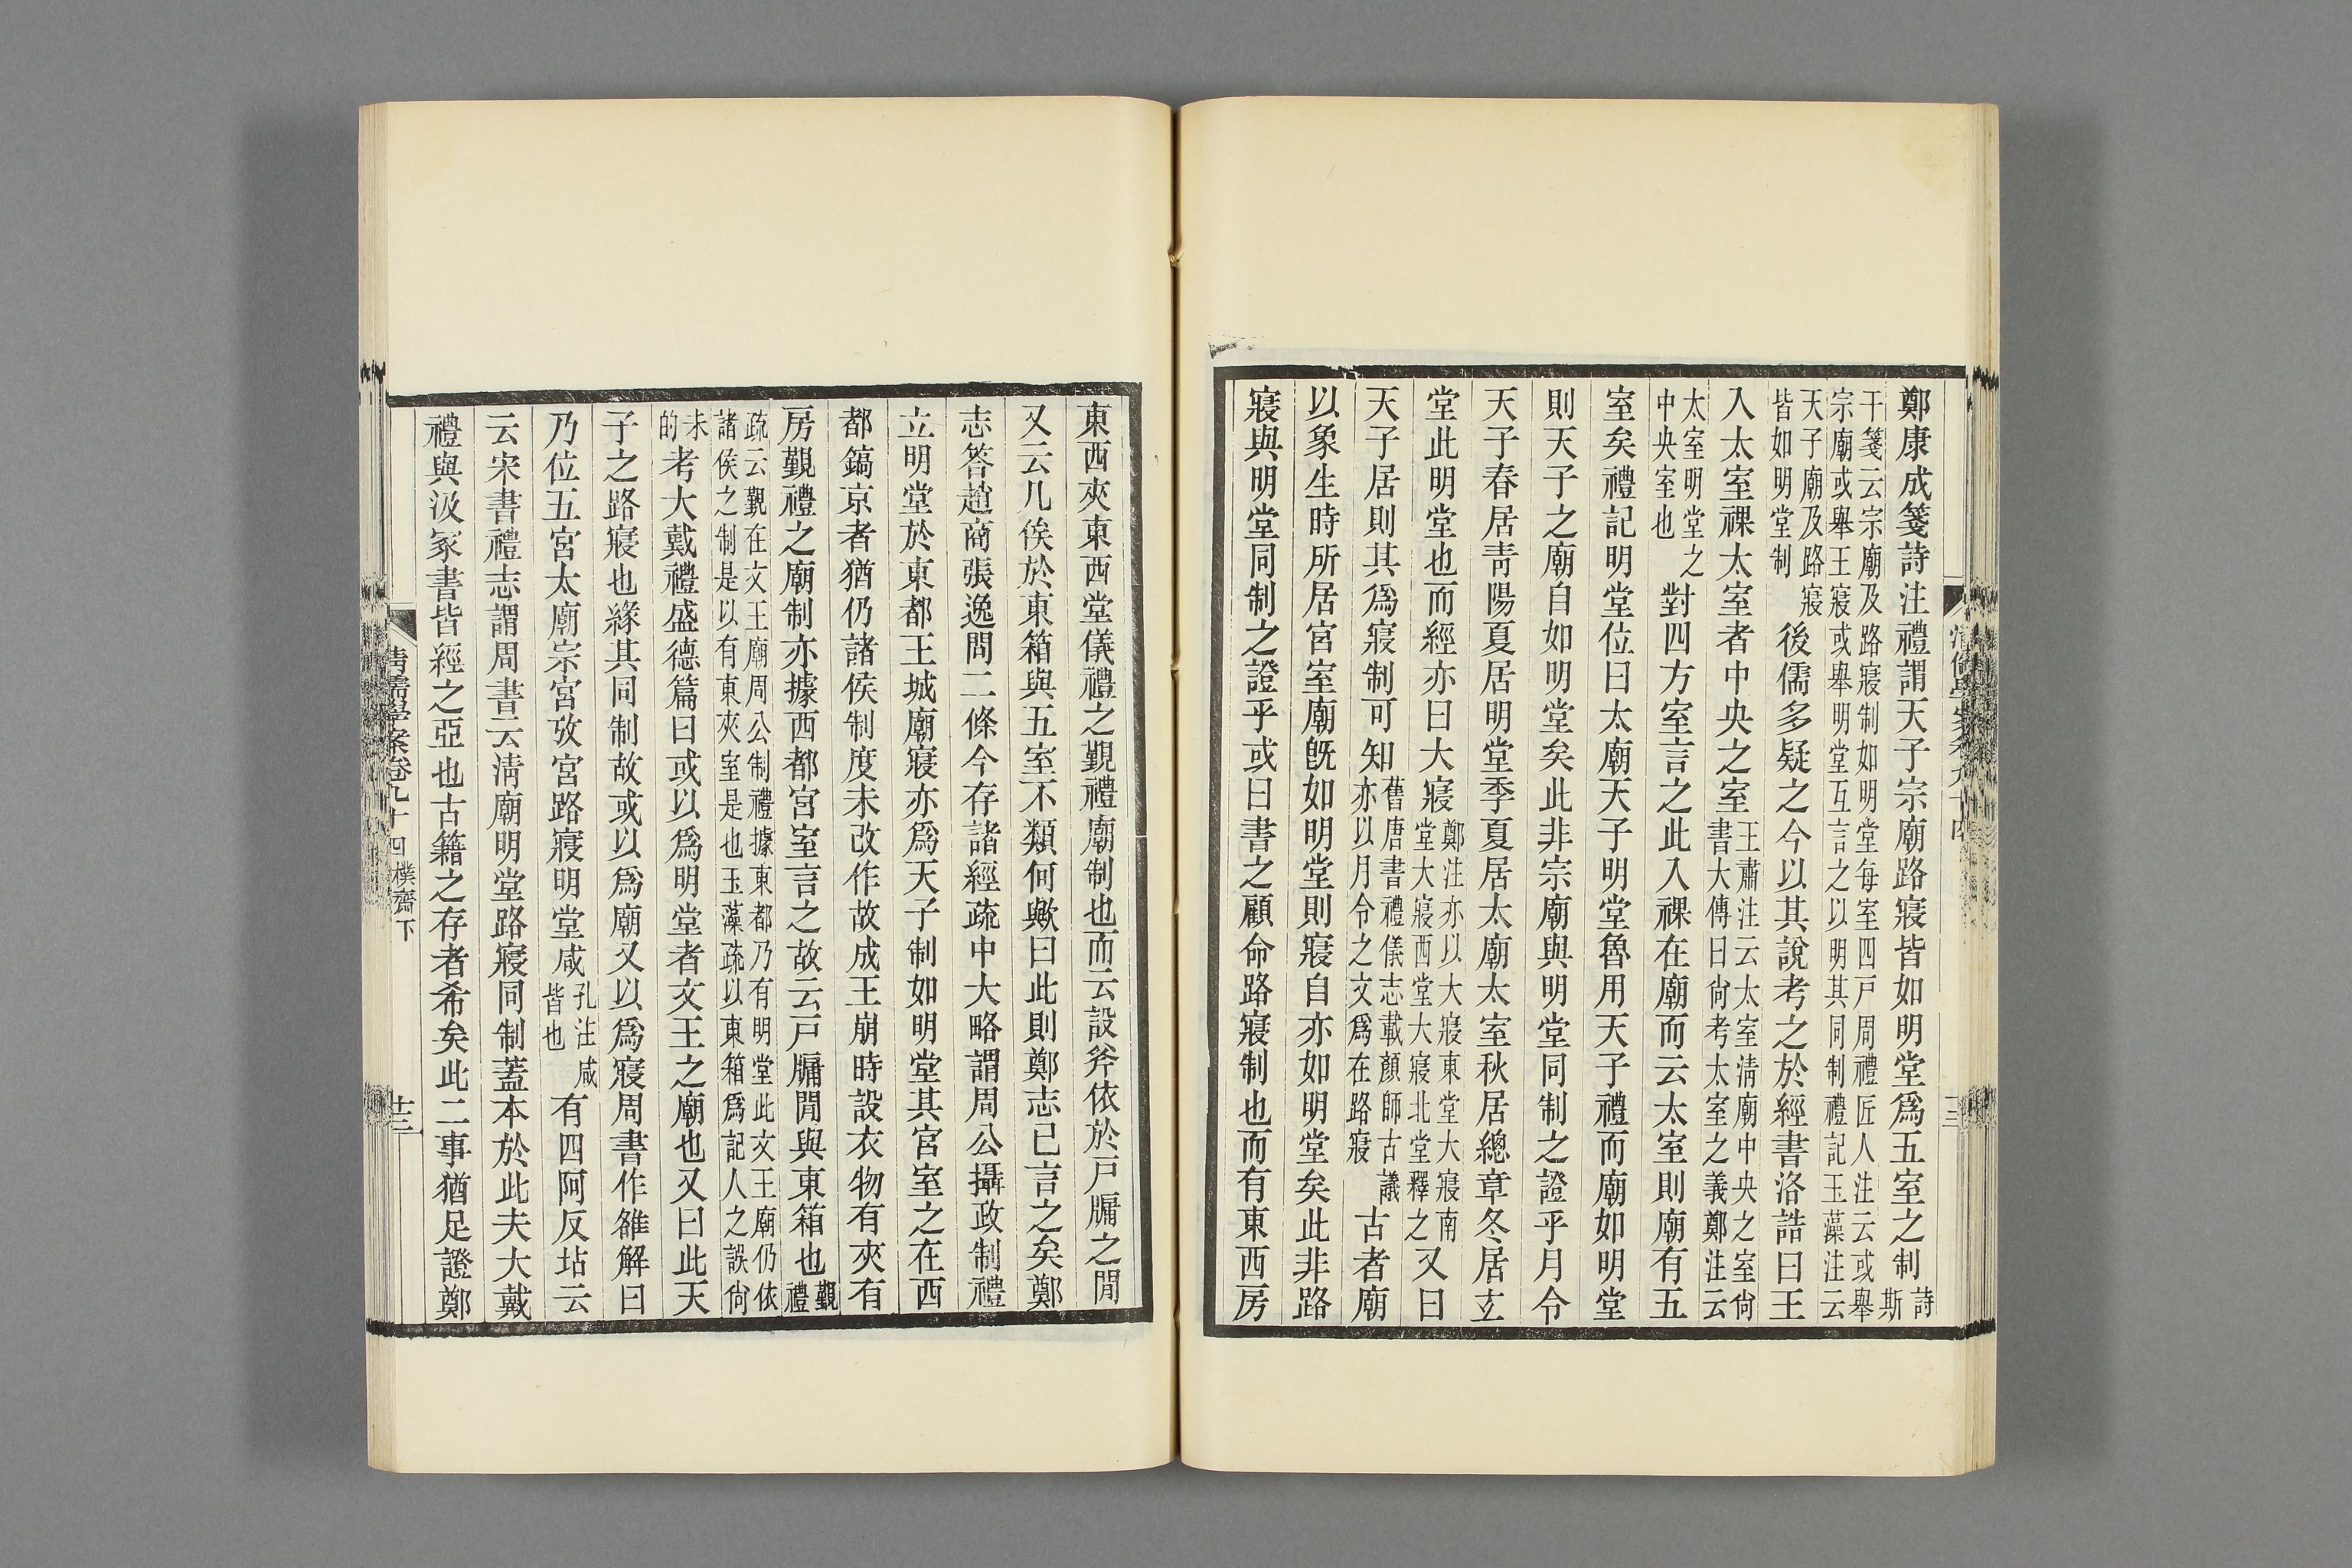 鄭康成箋詩注禮謂天子宗廟路寢皆如明堂爲五室之制詩斯
干箋云宗廟及路寢制如明堂每室四戸周禮匠人注云或舉
宗廟或舉王寢或舉明堂互言之以明其同制禮記玉藻注云
天子廟及路寢
皆如明堂制
後儒多疑之今以其說考之於經書洛誥曰王
入太室祼太室者中央之室
王肅注云太室淸廟中央之室尙
書大傳曰尙考太室之義鄭注云
太室明堂之
中央室也
對四方室言之此入祼在廟而云太室則廟有五
室矣禮記明堂位曰太廟天子明堂魯用天子禮而廟如明堂
則天子之廟自如明堂矣此非宗廟與明堂同制之證乎月令
天子春居靑陽夏居明堂季夏居太廟太室秋居總章冬居玄
堂此明堂也而經亦曰大寢
鄭注亦以大寢東堂大寢南
堂大寢西堂大寢北堂釋之
又曰
天子居則其爲寢制可知
舊唐書禮儀志載顏師古議
亦以月令之文爲在路寢
古者廟
以象生時所居宮室廟旣如明堂則寢自亦如明堂矣此非路
寢與明堂同制之證乎或曰書之顧命路寢制也而有東西房
東西夾東西堂儀禮之覲禮廟制也而云設斧依於戸牖之閒
又云几俟於東箱與五室不類何歟曰此則鄭志已言之矣鄭
志答趙商張逸問二條今存諸經疏中大略謂周公攝政制禮
立明堂於東都王城廟寢亦爲天子制如明堂其宮室之在西
都鎬京者猶仍諸侯制度未改作故成王崩時設衣物有夾有
房覲禮之廟制亦據西都宮室言之故云戸牖閒與東箱也覲禮
疏云覲在文王廟周公制禮據東都乃有明堂此文王廟仍依
諸侯之制是以有東夾室是也玉藻疏以東箱爲記人之誤尙
未
的
考大戴禮盛德篇曰或以爲明堂者文王之廟也又曰此天
子之路寢也緣其同制故或以爲廟又以爲寢周書作雒解曰
乃位五宮太廟宗宮攷宮路寢明堂咸
孔注咸
皆也
有四阿反坫云
云宋書禮志謂周書云淸廟明堂路寢同制蓋本於此夫大戴
禮與汲冢書皆經之亞也古籍之存者希矣此二事猶足證鄭
淸儒學案卷九十四 樸齋下
十三